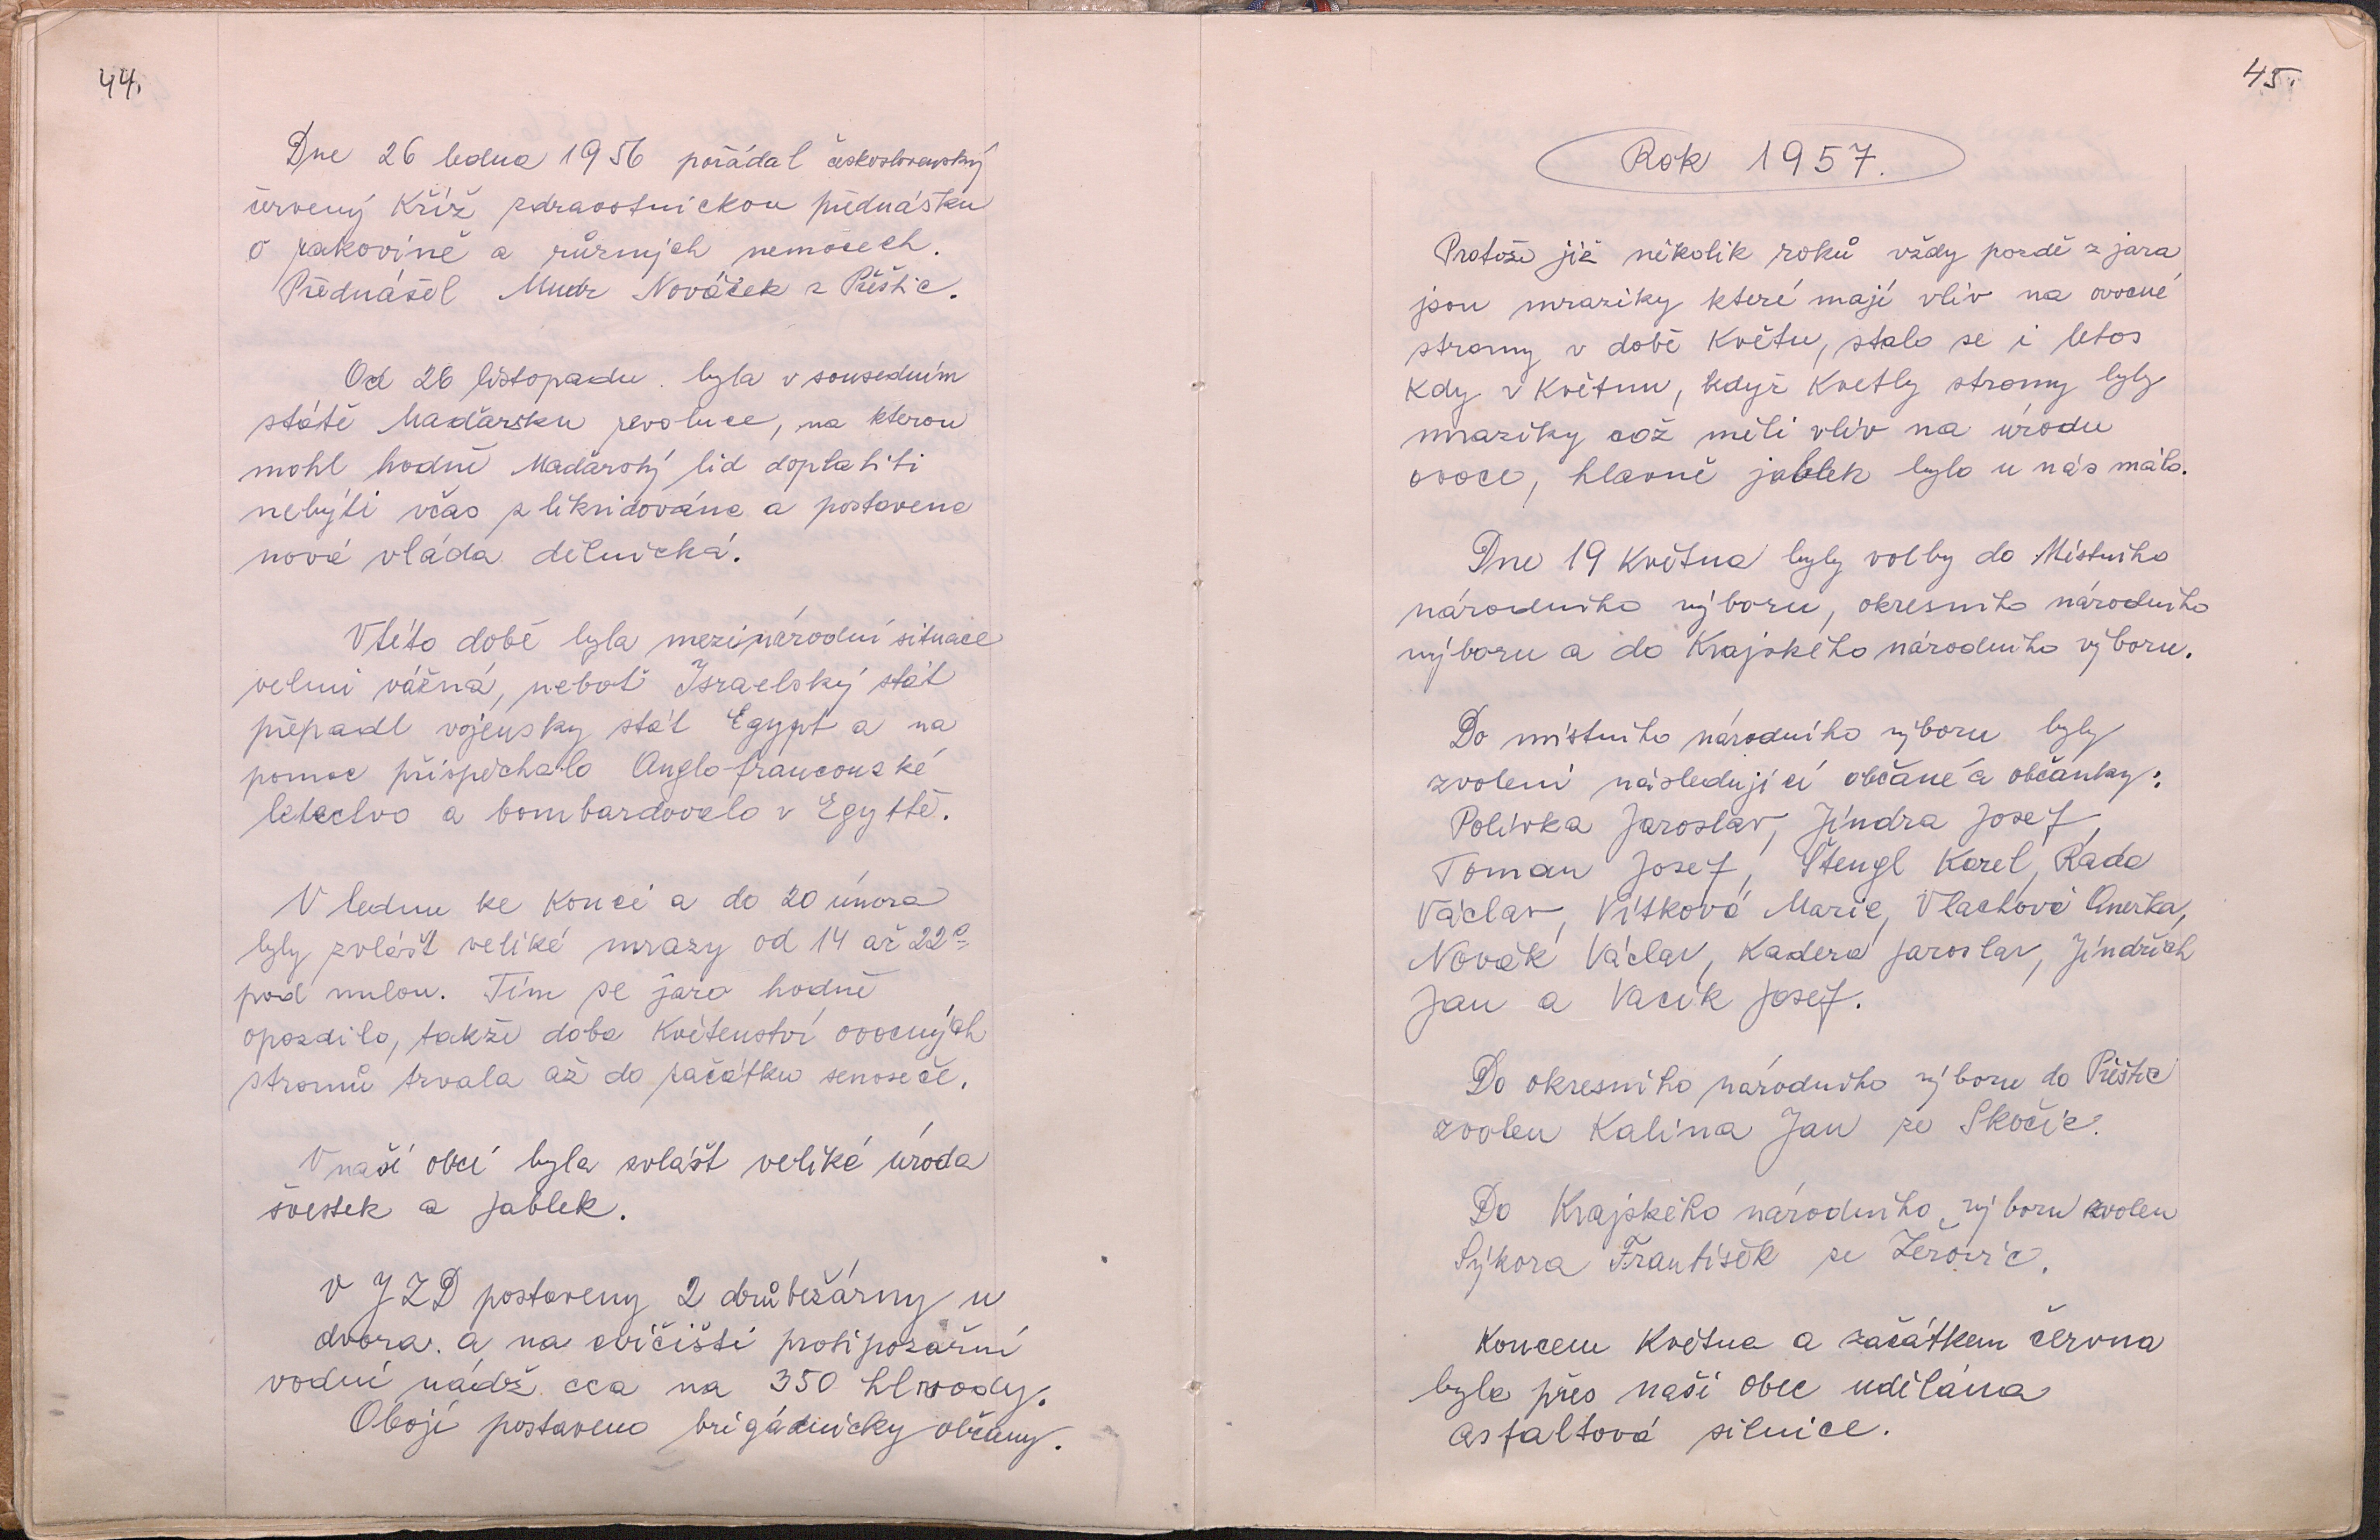 44.
Dne 26 ledna 1956 pořádal československý
červený Kříž zdravotnickou přednášku
o rakovině a různých nemocech.
Přednášel Mudr Nováček z Přeštic.
Od 26 listopadu byla v sousedním
státě Maďarsku revoluce, na kterou
mohl hodně Maďarský lid doplatiti
nebýti včas zlikvidována a postavena
nová vláda dělnická.
V této době byla mezinárodní situace
velmi vážná, neboť Israelský stát
přepadl vojensky stát Egypt a na
pomoc přispěchalo Anglo-francouzské
letectvo a bombardovalo v Egyptě.
V lednu ke konci a do 20 února
byly zvlášt veliké mrazy od 14 až 22°
pod nulou. Tím se jaro hodně
opozdilo, takže doba Květenství ovocných
stromů trvala až do začátku senoseče.
V naší obci byla zvlášt veliká úroda
švestek a jablek.
V JZD postaveny 2 drůbežárny u
dvora. a na cvičišti protipožární
vodní nádž. cca na 350 hl vody.
Obojí postaveno brigádnicky občany.
45.
Rok 1957.
Protože již několik roků vždy pozdě z jara
jsou mrazíky které mají vliv na ovocné
stromy v době Květu, stalo se i letos
Kdy v Květnu, když Kvetly stromy byly
mrazíky což měli vliv na úrodu
ovoce, hlavně jablek bylo u nás málo.
Dne 19 Května byly volby do Místního
národního výboru, okresního národního
výboru a do Krajského národního výboru.
Do místního národního výboru byly
zvoleni následující občané a občanky:
Polívka Jaroslav, Jindra Josef,
Toman Josef, Štengl Karel, Rada
Václav, Vítková Marie, Vlachová Anežka,
Novák Václav, Kadera Jaroslav, Jindřich
Jan a Vacík Josef.
Do okresního národního výboru do Přeštic
zvolen Kalina Jan ze Skočic.
Do Krajského národního výboru zvolen
Sýkora František ze Žerovic.
Koncem Května a začátkem června
byla přes naší obec udělána
asfaltová silnice.